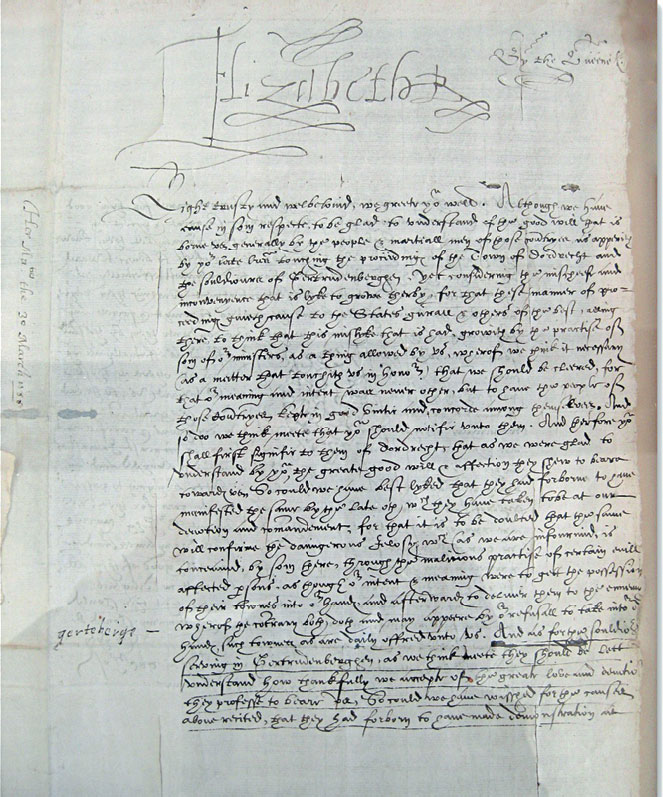 Elizabeth R
By the Queene
Right trusty and welbelovid, we greete yow well. Although we have
cause in som respects to be glad to understand of the good will that is
borne us generally by the people & martiall men of those contries as apperith
by yor late touching the proceeding of the Town of Dordrecht and
the souldiours of Gertrudenberghen, Yet considering the mischeef and
inconvenience that is lyke to growe therby, for that thes manner of pro-
ceding giveth cause to the States generall & others of the best
there, to think that this mislyke that is had, growith by the practise of
som of or ministers, as a thing allowed by us, wherof we think it necessary
as a matter that toucheth us in honor, that we should be cleered, for
that or meaning and intent was never other, but to have the people of
those Contryes kept in good unitie and concorde among themselves. And
so doo we think meete that yow should notifie unto them. And therfore yow
shall first signifie to them of Dordrecht, that as we were glad to
understand by yow the greate good will & affection they shew to beare
towards us, So could we have best lyked that they had forborne to have
manifested the same by the late oth, wch they have taken to be at our
devotion and commandement, for that it is to be doubted that the same
will confirme the daungerous Jelosy, wch as we are informed, is
conceaved, by som there, through the malicious practise of certain evill
affected psons, as though or intent & meaning were to get the possession
of their townes into or hands and afterwards to deliver them to the ennemy
wherof the contrary both doth and may appeere by or refusall to take into or
hands, such townes as are daily offred unto us. And as for the souldiors
serving in Gertrudenberghen, as we think meete they should be lett
understand how thankfully we accept of the great love and devotion
they professe to beare us, So could we have wisshed for the causes
above recited, that they had forborn to have made demonstration at
gertelberge
the 30 March